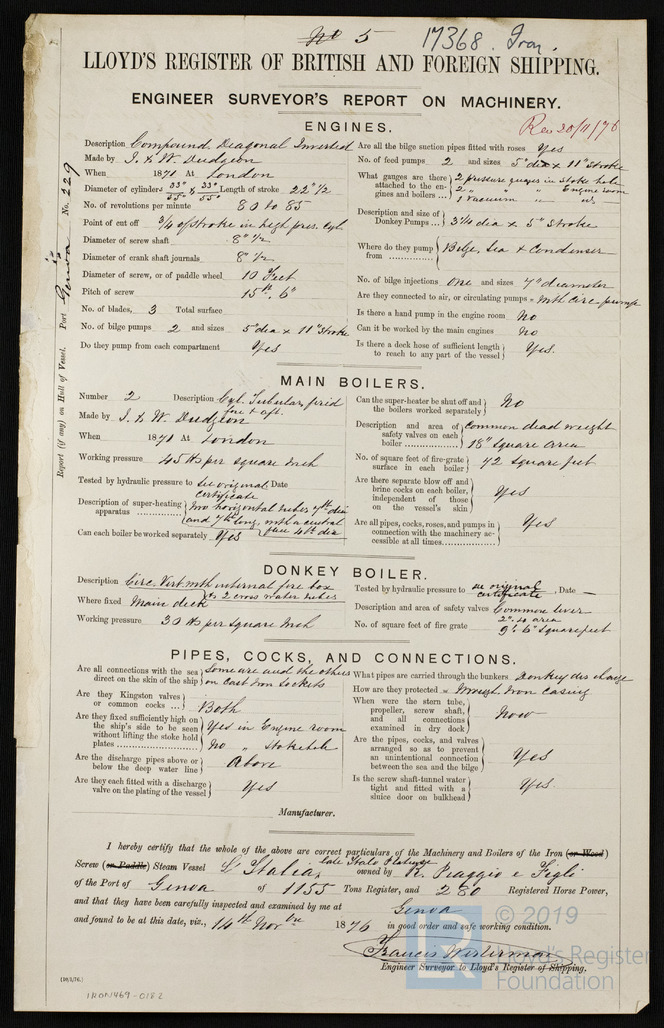 No 5 17368. Iron.
LLOYD'S REGISTER OF BRITISH AND FOREIGN SHIPPING.
ENGINEER SURVEYOR'S REPORT ON MACHINERY.
Rec 20/11/76
ENGINES.
Report (if any) on Hull of Vessel. Port Genoa No. 229
Description Compound Diagonal Inverted
Made by J. & W. Dudgeon
When 1871 At London
Diameter of cylinders 33" 55" x 33" 55" Length of stroke 22"1/2
No. of revolutions per minute 80 to 85
Point of cut off 3/4 of stroke in high pres. Cyl
Diameter of screw shaft 8"1/2
Diameter of crank shaft journals 8"1/2
Diameter of screw, or of paddle wheel 10 Feet
Pitch of screw 15ft. 6"
No. of blades, 3 Total surface
No. of bilge pumps 2 and sizes 5"dia x 11"stroke
Do they pump from each compartment Yes
Are all the bilge suction pipes fitted with roses Yes
No. of feed pumps 2 and sizes 5"dia x 11"stroke
What gauges are there attached to the engines and boilers ... 2 pressure guages in stoke hole
2 " " " Engine room
1 vacuum " "
Description and size of Donkey Pumps ... 3 3/4 dia x 5" stroke
Where do they pump from Bilge, Sea & Condenser
No. of bilge injections one and sizes 7" diameter
Are they connected to air, or circulating pumps = with circ. pump
Is there a hand pump in the engine room No
Can it be worked by the main engines No
Is there a deck hose of sufficient length to reach to any part of the vessel Yes.
MAIN BOILERS.
Number 2 Description Cyl. Tubular, fired fore & aft.
Made by J. & W. Dudgeon
When 1871 At London
Working pressure 45 lbs per square inch
Tested by hydraulic pressure to see original certificate Date
Description of super-heating apparatus two horizontal tubes 7ft dia and 7ft long, with a central flue 4ft dia
Can each boiler be worked separately Yes
Can the super-heater be shut off and the boilers worked separately No
Description and area of safety valves on each boiler common dead weight 18" square area
No. of square feet of fire-grate surface in each boiler 72 square feet
Are there separate blow off and brine cocks on each boiler, independent of those on the vessel's skin Yes
Are all pipes, cocks, roses, and pumps in connection with the machinery accessible at all times Yes
DONKEY BOILER.
Description Circ. Vert. with internal fire box & 2 cross water tubes
Where fixed Main deck
Working pressure 30 lbs per square inch
Tested by hydraulic pressure to see original certificate, Date —
Description and area of safety valves Common lever 2" sq area
No. of square feet of fire grate 9' 6" square feet
PIPES, COCKS, AND CONNECTIONS.
Are all connections with the sea direct on the skin of the ship Some are and the others on cast iron sockets
Are they Kingston valves or common cocks ... Both
Are they fixed sufficiently high on the ship's side to be seen without lifting the stoke hold plates Yes in Engine room
No " stokehole
Are the discharge pipes above or below the deep water line Above
Are they each fitted with a discharge valve on the plating of the vessel Yes
What pipes are carried through the bunkers Donkey discharge
How are they protected = Through Iron casing
When were the stern tube, propeller, screw shaft, and all connections examined in dry dock Now
Are the pipes, cocks, and valves arranged so as to prevent an unintentional connection between the sea and the bilge Yes
Is the screw shaft-tunnel water tight and fitted with a sluice door on bulkhead Yes.
Manufacturer.
I hereby certify that the whole of the above are correct particulars of the Machinery and Boilers of the Iron (or Wood)
Screw (or Paddle) Steam Vessel L'Italia, late Italo Platense owned by R. Piaggio e Figli
of the Port of Genoa of 1155 Tons Register, and 280 Registered Horse Power,
and that they have been carefully inspected and examined by me at Genoa
and found to be at this date, viz., 14th Novbre 1876 in good order and safe working condition.
Francis Westerman
Engineer Surveyor to Lloyd's Register of Shipping.
IRON469-0182
© 2019
LR
Lloyd's Register
Foundation